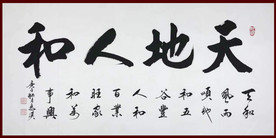 天地人和
天和
風雨
順地
和五
谷豐
人和
百業
旺家
和萬
事興